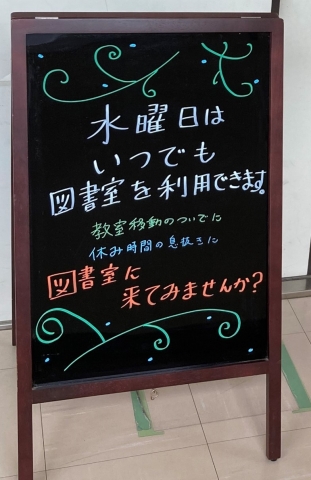 水曜日は
いつでも
図書室を利用できます。
教室移動のついでに
休み時間の息抜きに
図書室に
来てみませんか?